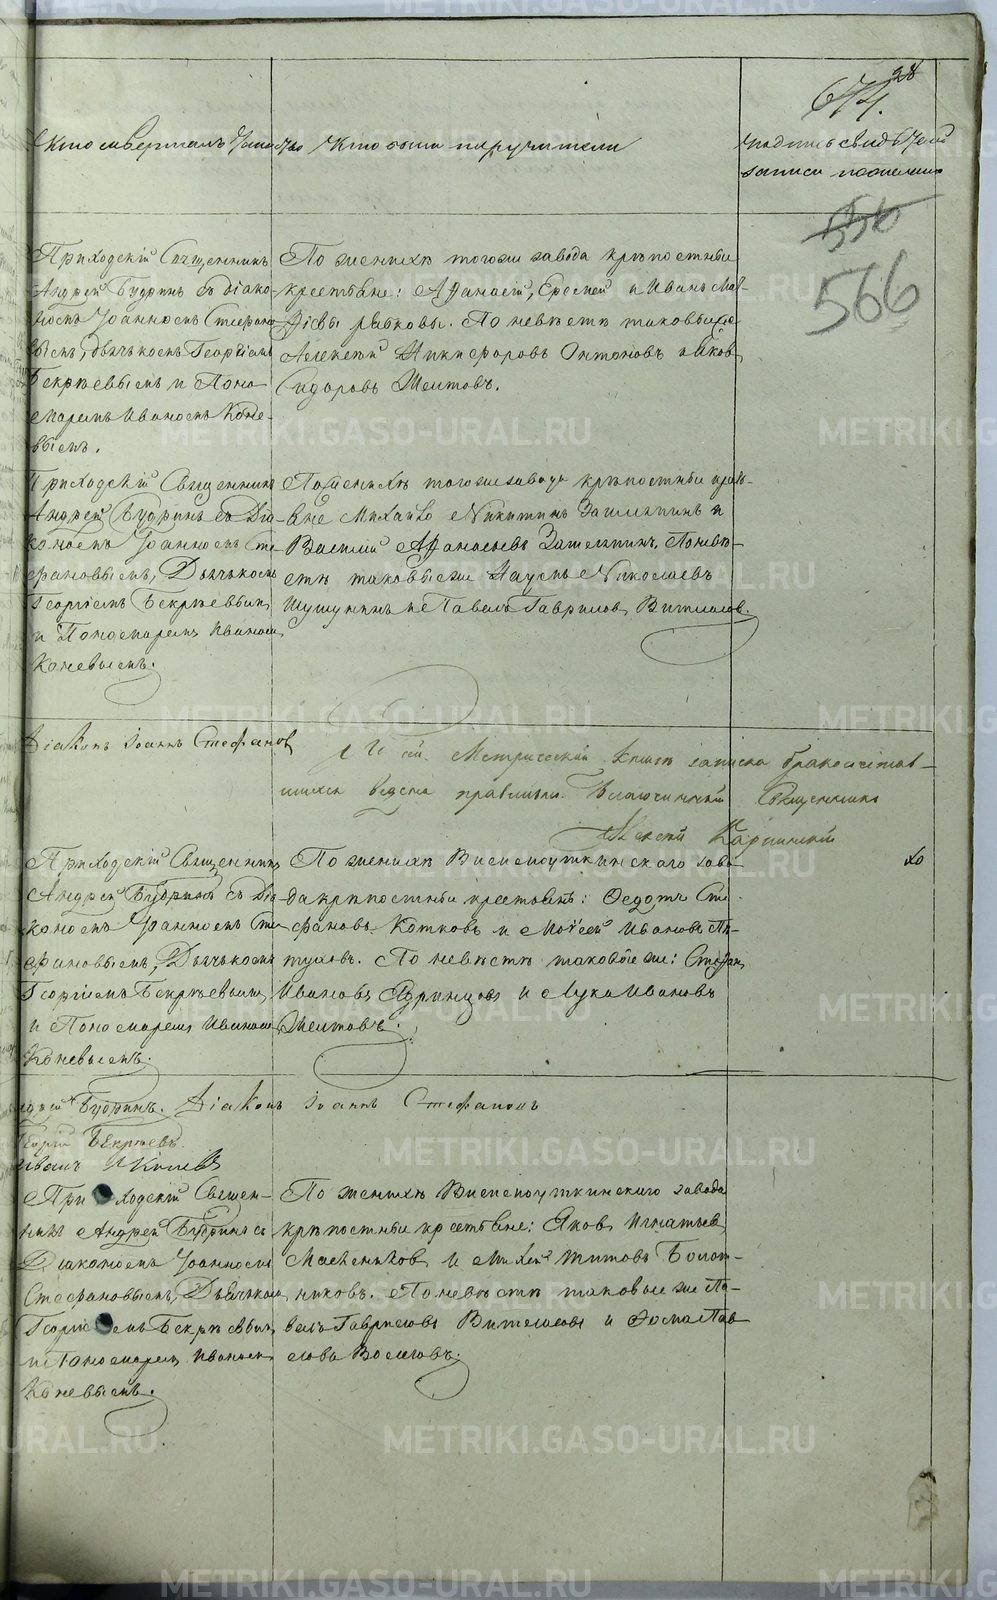 674. 28
Кто совершалъ Таинство
Кто были поручители
записи по желанию
556
566
Приходскій Священникъ
Андрей Будринъ съ діако-
номъ Іоанномъ Стефано
вымъ, дьячькомъ Георгіемъ
Бекряевымъ и Поно
маремъ Иваномъ Коне-
вымъ.
По женихѣ тогоже завода крѣпостныи
крестьяне: Афанасій, Еремей и Иванъ Мат-
Алексѣй Никифоровъ Онтоновъ и Яковъ
Сидоровъ Желтовъ.
Приходскій Священникъ
Андрей Будринъ съ Діа-
кономъ Іоанномъ Сте
фановымъ, Дьячькомъ
Георгіемъ Бекряевымъ
и Пономаремъ Иваномъ
Коневымъ.
По женихѣ тогоже завода крѣпостныи кресть-
яне Михайло Никитинъ и
Василій Афанасьевъ По невѣ-
стѣ таковыеже Наумъ Николаевъ
и Павелъ Гавриловъ
Діаконъ Іоаннъ Стефановъ
Къ сей Метрической Книгѣ записка бракосочетав-
шихся ведена правильно. Благочинный Священникъ
Приходскій Священникъ
Андрей Будринъ съ Діа-
кономъ Іоанномъ Сте
фановымъ, Дьячькомъ
Георгіемъ Бекряевымъ
и Пономаремъ Иваномъ
Коневымъ.
По женихѣ Висимоуткинскаго заво-
да крѣпостныи крестьянѣ: Федотъ Сте-
фановъ Котковъ и Моѵсей Ивановъ Пѣ-
туховъ. По невѣстѣ таковые же: Стефанъ
Ивановъ и Лука Ивановъ
Желтовъ.
Андрей Будринъ. Діаконъ Іоаннъ Стефановъ
Георгій Бекряевъ
Иванъ Коневъ
Приходскій Священ-
никъ Андрей Будринъ съ
Діакономъ Іоанномъ
Стефановымъ, Дьячькомъ
Георгіемъ Бекряевымъ
и Пономаремъ Иваномъ
Коневымъ.
По женихѣ Висимоуткинскаго завода
крѣпостныи крестьяне: Яковъ Игнатьевъ
Маслениковъ и Михей Титовъ Болот-
никовъ. По невѣстѣ таковые же Па-
велъ Гавриловъ и Фома Пав
ловъ
METRIKI.GASO-URAL.RU